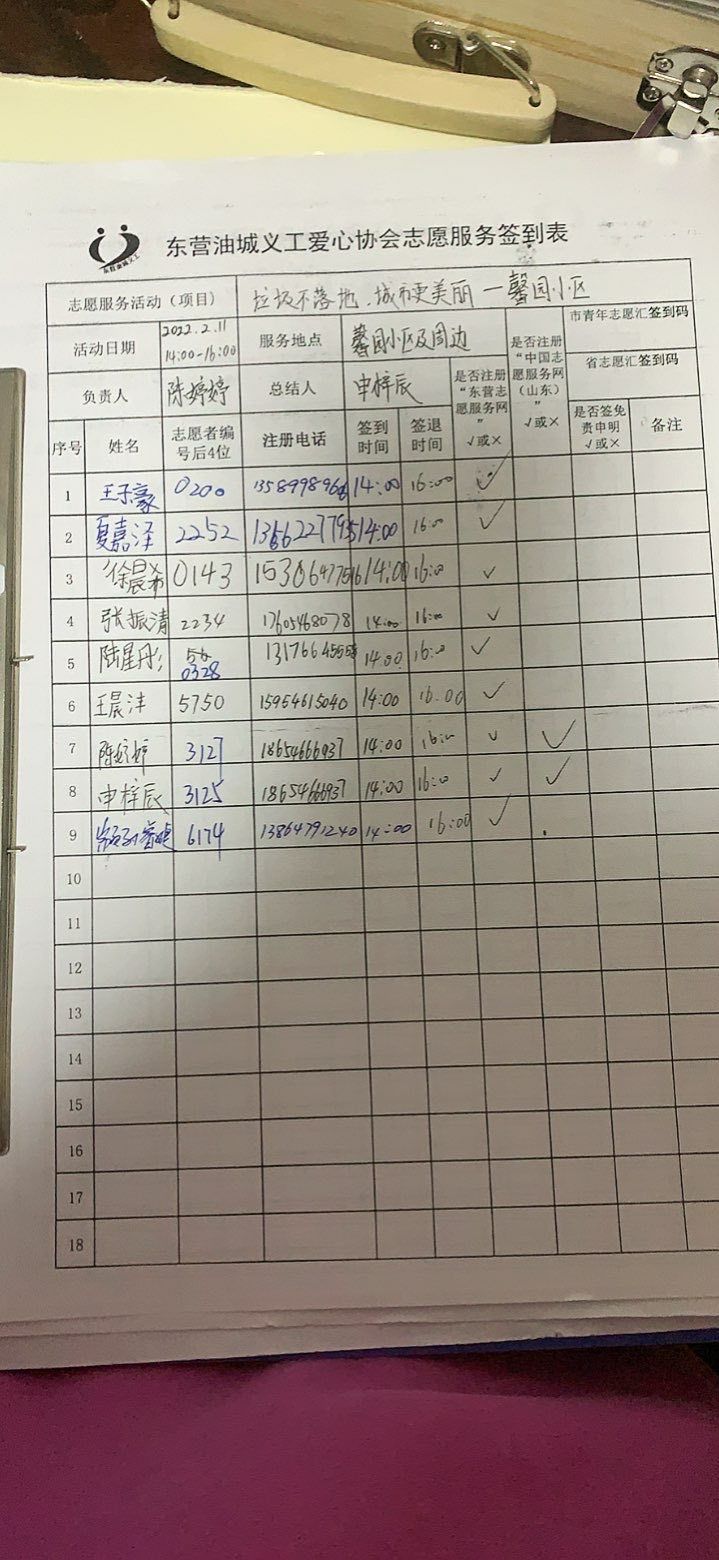 东营油城义工
东营油城义工爱心协会志愿服务签到表
志愿服务活动（项目） 垃圾不落地.城市更美丽 — 馨园小区
活动日期 2022.2.11 14:00-16:00 服务地点 馨园小区及周边 是否注册“东营志愿服务网” √或× 是否注册“中国志愿服务网（山东） √或× 市青年志愿汇签到码
省志愿汇签到码
负责人 陈婷婷 总结人 申梓辰
序号 姓名 志愿者编号后4位 注册电话 签到时间 签退时间 是否签免责申明 √或× 备注
1 王子豪 0200 14:00 16:00 ✓
2 夏嘉泽 2252 14:00 16:00 ✓
3 徐晨希 0143 14:00 16:00 ✓
4 张振清 2234 17605468078 14:00 16:00 ✓
5 陆星彤 0328 14:00 16:00 ✓
6 王晨沣 5750 15954615040 14:00 16.00 ✓
7 陈婷婷 3127 18654666937 14:00 16:00 ✓ ✓
8 申梓辰 3125 18654666937 14:00 16:00 ✓ ✓
9 6174 13864791240 14:00 16:00 ✓
10
11
12
13
14
15
16
17
18